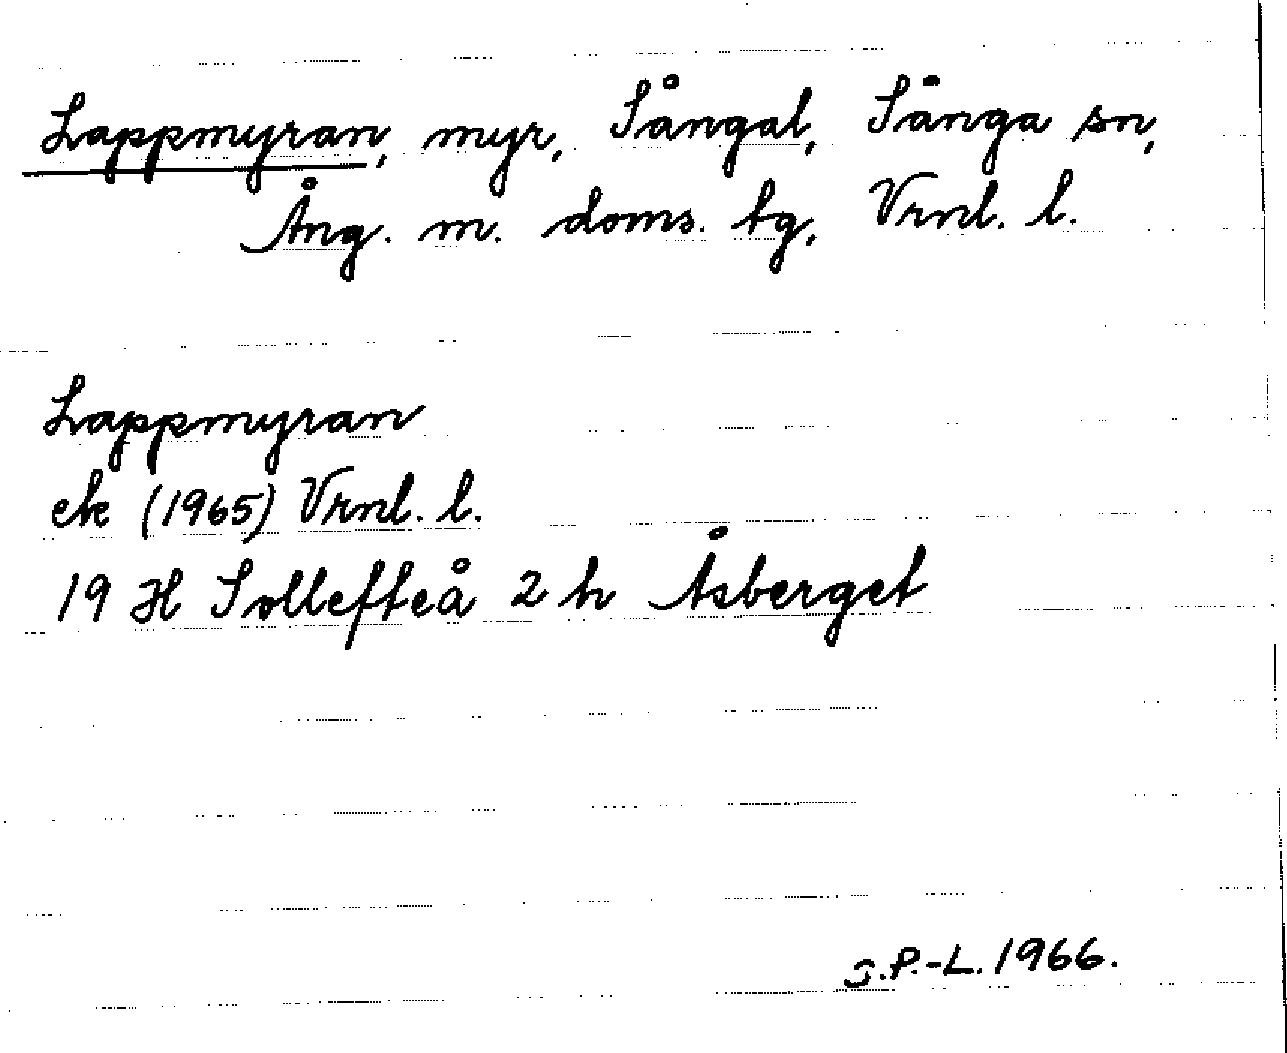 Lappmyran, myr, Sångal, Sånga sn,
Ång. m. doms. tg, Vrnl. l.
Lappmyran
ek (1965) Vrnl. l.
19 H Sollefteå 2 h Åsberget
S.P.-L. 1966.